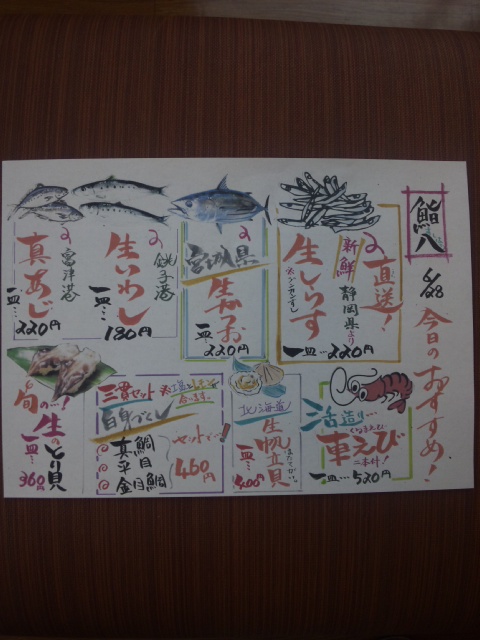 鮨八
6/28 今日のおすすめ!
直送!
新鮮 静岡県より
生しらす
※グンカンずし
一皿…220円
宮城県
生かつお
一皿
220円
銚子港の
生いわし
一皿… 180円
富津港の
真あじ
一皿… 220円
活造り…
車えび
二本付!
一皿…520円
北海道
生帆立貝
ほたてがい
一皿… 400円
三貫セット
白身づくし
真鯛
平目
金目鯛
セットで…!
460円
旬の…!
生のとり貝
一皿… 360円